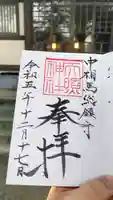 中相馬惣鎮守
神社
奉拝
令和五年十二月十七日